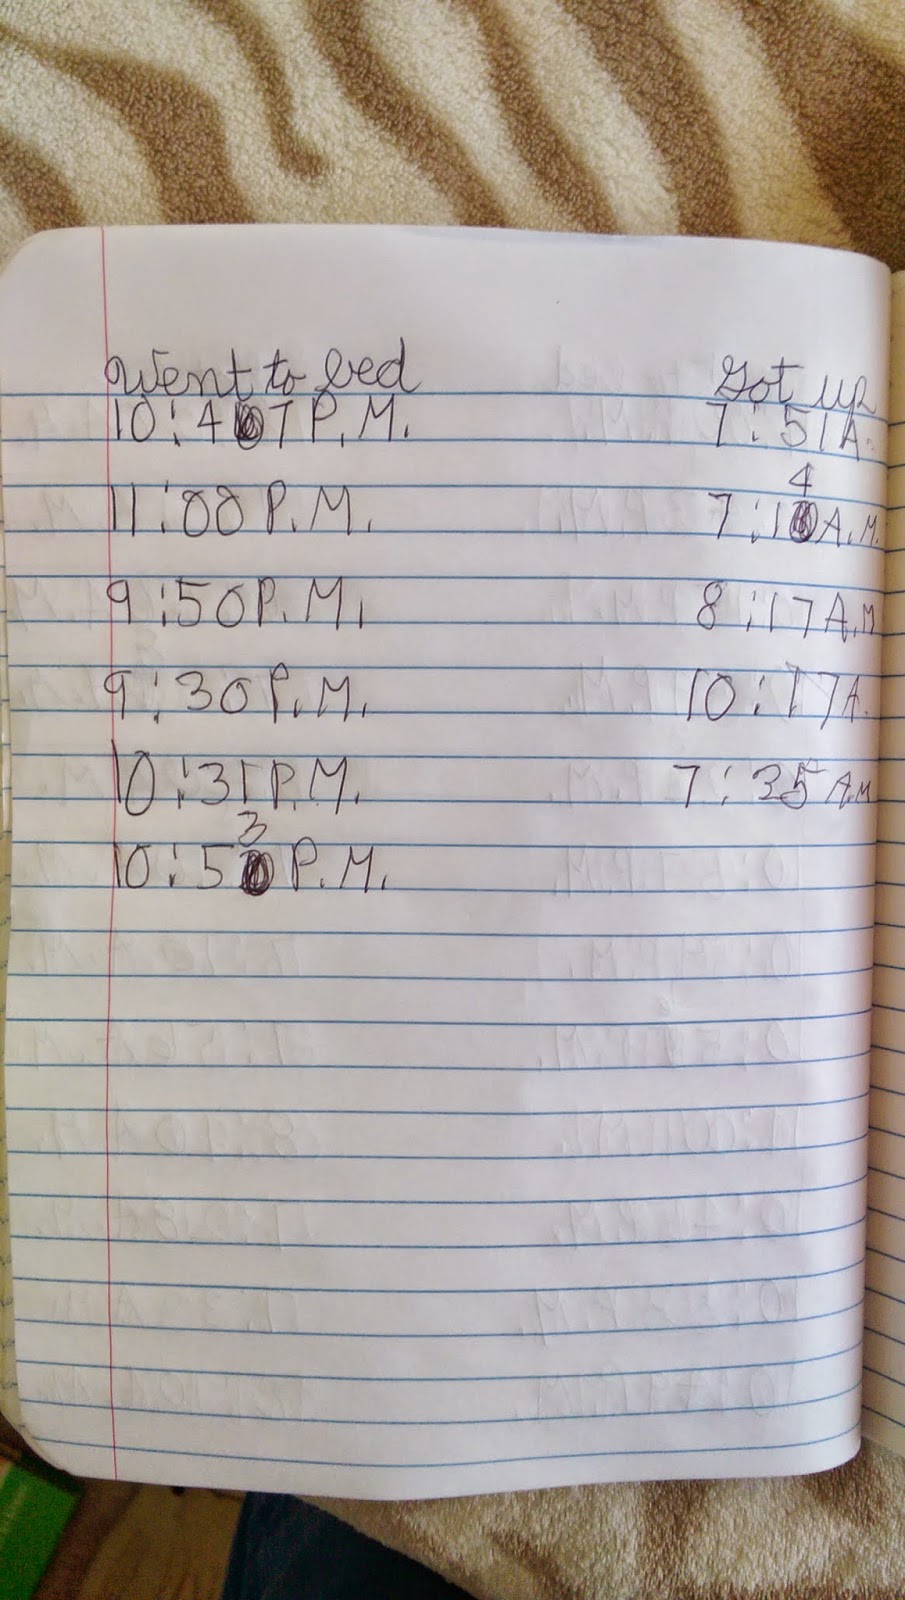 Went to bed Got up
10:47 P.M. 7:51 A.
11:00 P.M. 7:14 A.M.
9:50 P.M. 8:17 A.M
9:30 P.M. 10:17 A.
10:31 P.M. 7:35 A.M
10:53 P.M.